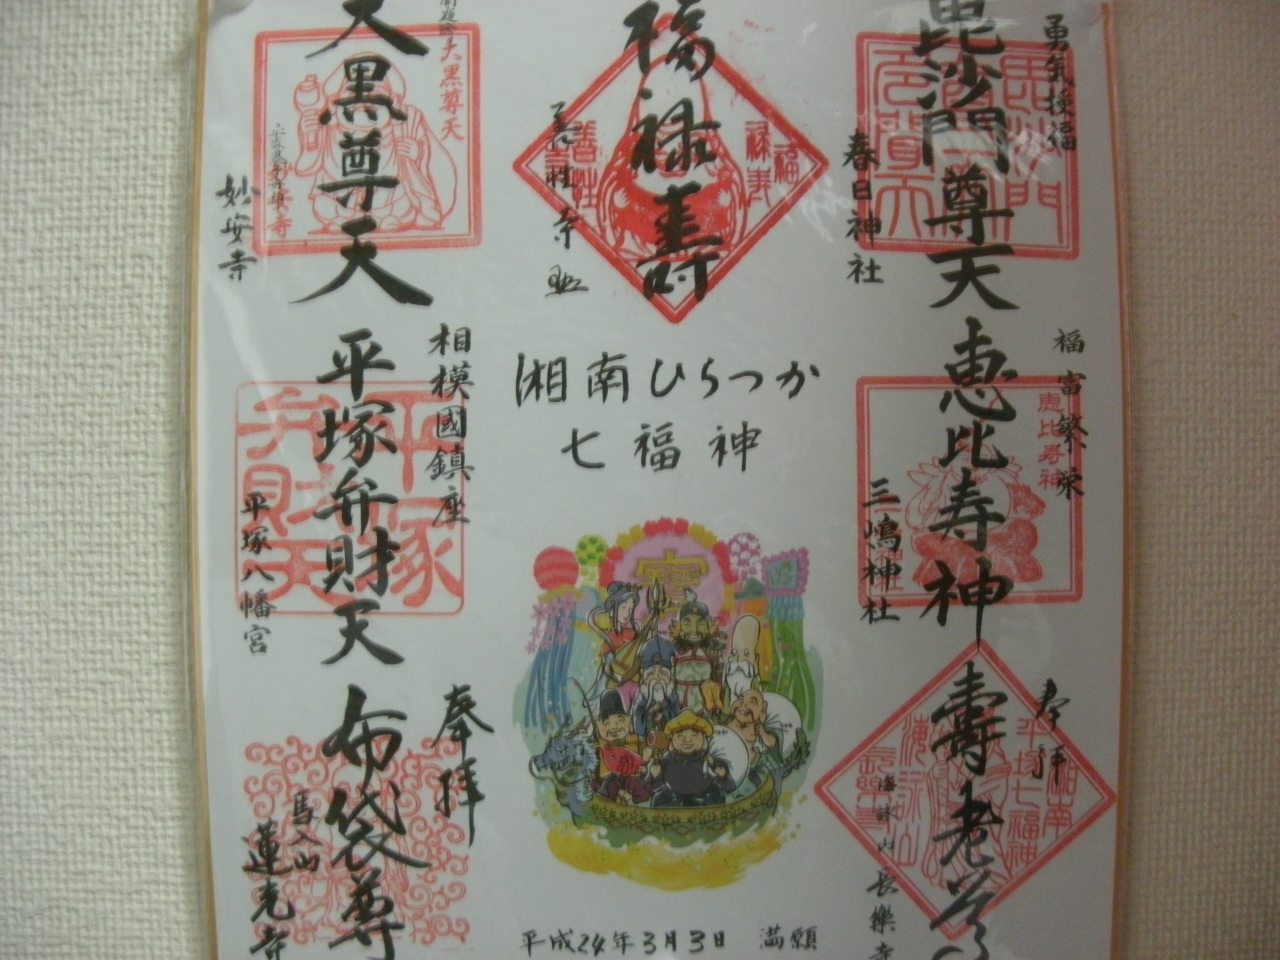 勇気授福
毘沙門尊天
春日神社
福禄寿
善性寺
大黒尊天
大黒尊天
妙安寺
湘南ひらつか
七福神
福富繁栄
恵比寿神
恵比寿神
三嶋神社
相模國鎮座
平塚弁財天
平塚弁財天
平塚八幡宮
寶
奉拝
寿老尊
湘南
平塚七福神
長樂寺
奉拝
布袋尊
馬入山
蓮光寺
平成24年3月3日 満願